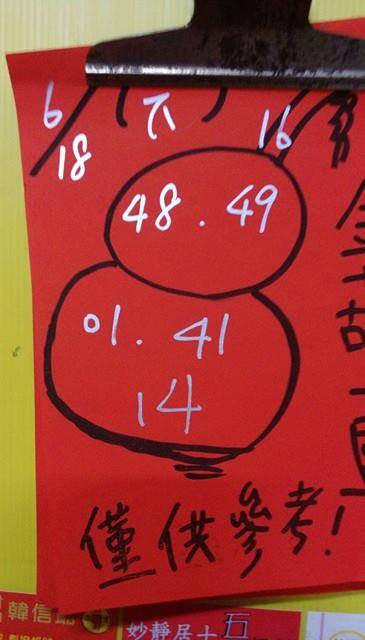 6/18 (六) 16
48 . 49
01 . 41
14
僅供參考!
韓信爺
妙靜居士 五